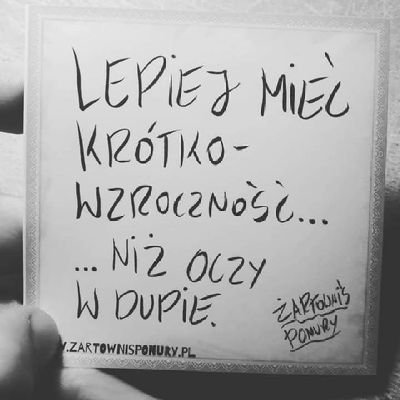 LEPIEJ MIEĆ
KRÓTKO-
WZROCZNOŚĆ...
... NIŻ OCZY
W DUPIE.
ŻARTOWNIŚ
PONURY
.ZARTOWNISPONURY.PL